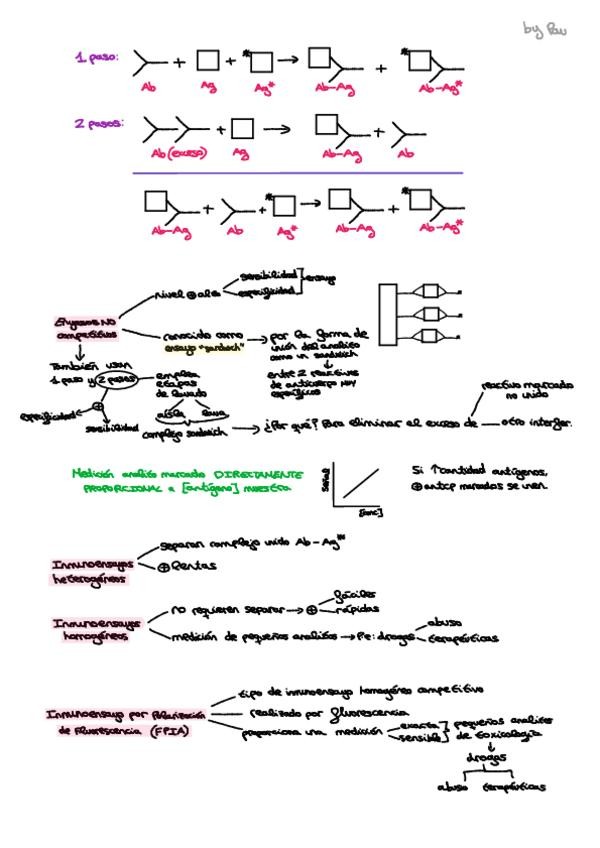 by Pau
1 paso:
+ + * → + *
Ab Ag Ag* Ab-Ag Ab-Ag*
2 pasos:
+ → +
Ab (exceso) Ag Ab-Ag Ab
+ + * → + *
Ab-Ag Ab Ag* Ab-Ag Ab-Ag*
Ensayos NO
competitivos
nivel ⊕ alto
sensibilidad
especificidad
ensayo
conocido como
ensayo "sandwich"
→ por la forma de
unión del analito
como un sandwich
↓
entre 2 reactivos
de anticuerpo muy
específicos
También usan
1 paso y 2 pasos
⊕
especificidad
sensibilidad
emplea
etapas
de lavado
aísla lava
complejo sandwich
→ ¿Por qué? Para eliminar el exceso de
reactivo marcado
no unido
otro interfer.
Medición analito marcado DIRECTAMENTE
PROPORCIONAL a [antígeno] muestra
Señal
[conc]
Si ↑cantidad antígenos,
⊕ anticp marcados se unen
Inmunoensayos
heterogéneos
separan complejo unido Ab-Ag*
⊕ lentas
Inmunoensayos
homogéneos
no requieren separar → ⊕
fáciles
rápidas
medición de pequeños analitos → Pe: drogas
abuso
terapéuticas
Inmunoensayo por Polarización
de Fluorescencia (FPIA)
tipo de inmunoensayo homogéneo competitivo
realizado por fluorescencia
proporciona una medición
exacta
sensible
pequeños analitos
de toxicología
↓
drogas
abuso terapéuticas